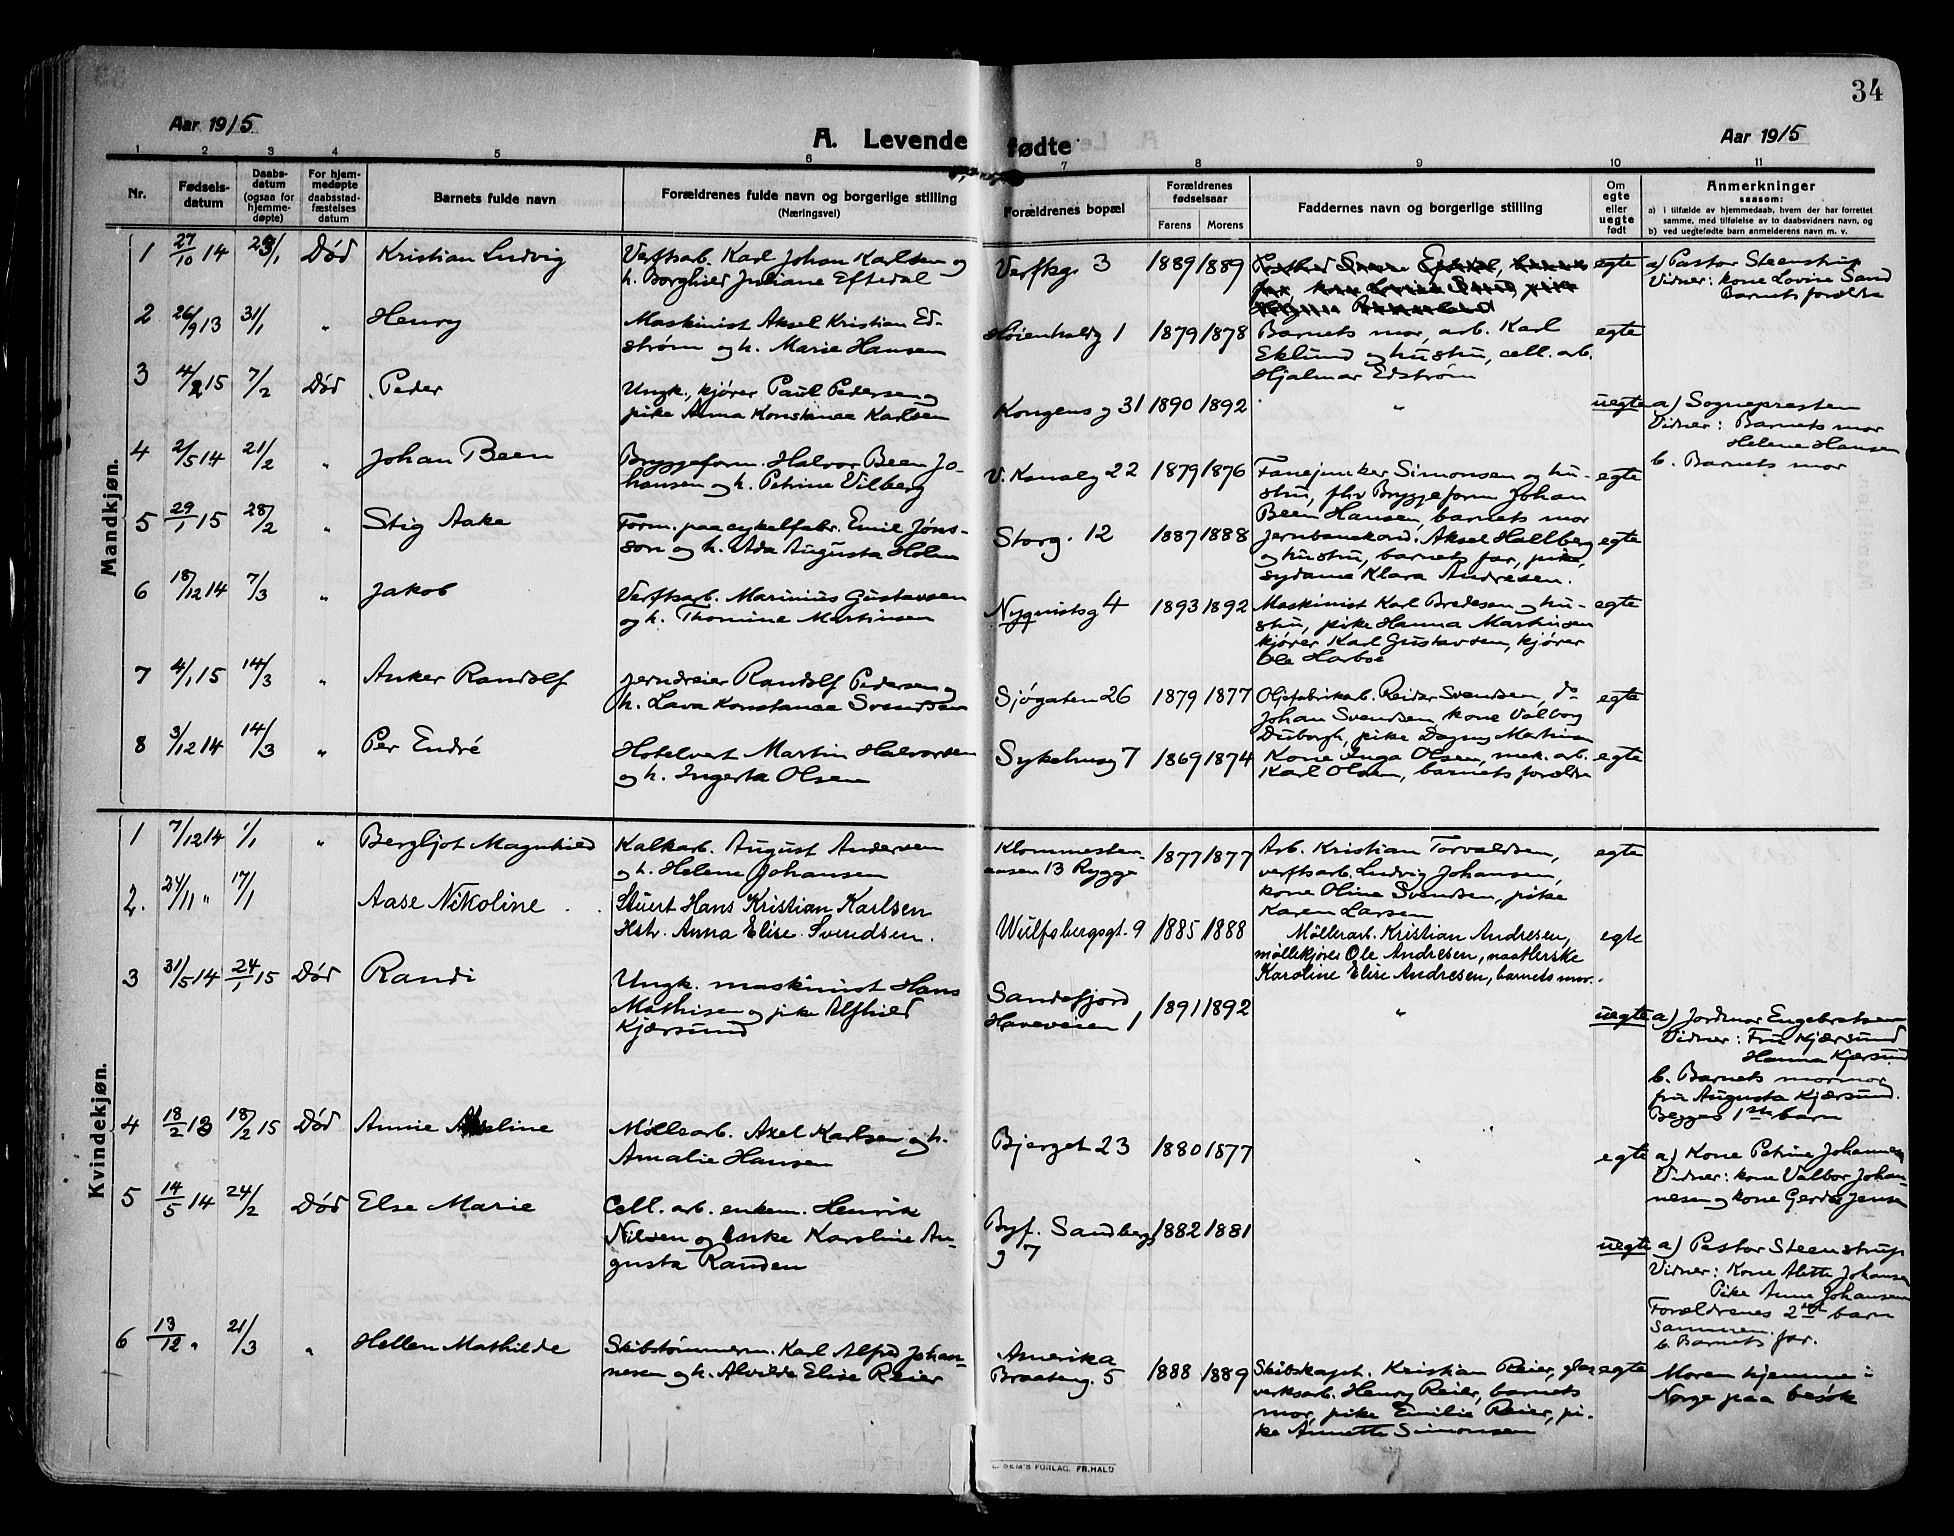 34
Aar 1915
A. Levende fødte
Aar 1915
1 2 3 4 5 6 7 8 9 10 11
Nr.
Fødsels-
datum
Daabs-
datum
(ogsaa for
hjemme-
døpte)
For hjem-
medøpte
daabsstad-
fæstelses
datum
Barnets fulde navn
Forældrenes fulde navn og borgerlige stilling
(Næringsvei)
Forældrenes bopæl
Forældrenes
fødselsaar
Farens Morens
Faddernes navn og borgerlige stilling
Om
egte
eller
uegte
født
Anmerkninger
saasom:
a) i tilfælde av hjemmedaab, hvem der har forrettet
samme, med tilføielse av to daabsvidners navn, og
b) ved uegtefødte barn anmelderens navn m. v.
Mandkjøn.
1 27/10 14 23/1 Død Kristian Ludvig
Verftsarb. Karl Johan Karlsen og
h. Borghild Juliane Eftedal
Verftsg. 3 1889 1889
egte
a) Pastor Steenstrup
Vidner: kone Lovise Sand
Barnets forældre
2 26/9 13 31/1 " Henry
Maskinist Aksel Kristian Ed-
strøm og h. Marie Hansen
Høienhaldg 1 1879 1878
Barnets mor, arb. Karl
Eklund og hustru, cell. arb.
Hjalmar Edstrøm
egte
3 4/2 15 7/2 Død Peder
Ungk., kjører Paul Pedersen og
pike Anna Konstance Karlsen
Kongens g 31 1890 1892
"
uegte
a) Sognepresten
Vidner: Barnets mor
Helene Hansen
b. Barnets mor
4 2/5 14 21/2 " Johan Been
Bryggeform. Halvor Been Jo-
hansen og h. Petrine Vilberg
V. Kanalg 22 1879 1876
Fanejunker Simonsen og hu-
stru, fhv Bryggeform Johan
Been Hansen, barnets mor
egte
5 29/1 15 28/2 " Stig Aake
Form. paa cykelfabr. Emil Jøns-
son og h. Ada Augusta Holm
Storg. 12 1887 1888
Jernbanekond. Aksel Hallberg
og hustru, barnets far, pike,
sydame Klara Andresen.
egte
6 18/12 14 7/3 " Jakob
Verftsarb. Marinius Gustavsen
og h. Thomine Martinsen
Nyquistsg 4 1893 1892
Maskinist Karl Bredesen og hu-
stru, pike Hanna Martinsen
kjører Karl Gustavsen, kjører
Ole Harboe
egte
7 4/1 15 14/3 " Anker Randolf
Jerndreier Randolf Pedersen og
h. Lava Konstance Svendsen
Sjøgaten 26 1879 1877
Oljefabrikarb. Reidar Svendsen, do
Johan Svendsen, kone Valborg
Duborgh, pike Dagny Martinsen
egte
8 3/12 14 14/3 " Per Endré
Hotelvert Martin Halvorsen
og h. Ingerta Olsen
Sykehusg 7 1869 1874
Kone Inga Olsen, mek. arb.
Karl Olsen, barnets forældre
egte
Kvindekjøn.
1 7/12 14 1/1 " Bergljot Magnhild
Kalkarb. August Andersen
og h. Helene Johansen
Klommesten-
aasen 13 Rygge 1877 1877
Arb. Kristian Torvaldsen,
verftsarb. Ludvig Johansen,
kone Oline Svendsen, pike
Karen Larsen
egte
2. 24/11 " 17/1 Aase Nikoline
Stuert Hans Kristian Karlsen
Hstr. Anna Elise Svendsen.
Wulfsbergsgt. 9 1885 1888
Møllerarb. Kristian Andresen,
møllekjører Ole Andresen, naatlerske
Karoline Elise Andresen, barnets mor.
egte
3 31/5 14 24/1 15 Død Randi
Ungk. maskinist Hans
Mathisen og pike Alfhild
Kjærsund
Sandefjord
Haveveien 1 1891 1892
"
uegte
a) Jordmor Engebretsen
Vidner: Fru Kjærsund
Hanna Kjærsund
b. Barnets mormor
fru Augusta Kjærsund.
Begges 1ste barn
4 18/2 13 18/2 15 Død Annie Aseline
Møllearb. Axel Karlsen og h.
Amalie Hansen
Bjerget 23 1880 1877
"
egte
a) Kone Petrine Johannesen
Vidner: kone Valbor Johan-
nesen og kone Gerda Jensen
5 14/5 14 24/2 Død Else Marie
Cell. arb. enkem. Henrik
Nilsen og enke Karoline Au-
gusta Randen
Byf. Sandberg
g 7 1882 1881
uegte
a) Pastor Steenstrup
Vidner: Kone Alette Johansen
Pike Anne Johansen
Forældrenes 2net barn
sammen.
b. Barnets far.
6 13/12 " 21/3 " Hellen Mathilde
Skibstømmerm. Karl Alfred Johan-
nesen og h. Alvilde Elise Reier
Amerika
Braateng. 5 1888 1889
Skibskapt. Kristian Reier, glas
verksarb. Henry Reier, barnets
mor, pike Emilie Reier, pi-
ke Annette Simonsen
egte
Moren hjemme i
Norge paa besøk
SEM'S FORLAG. FR.HALD